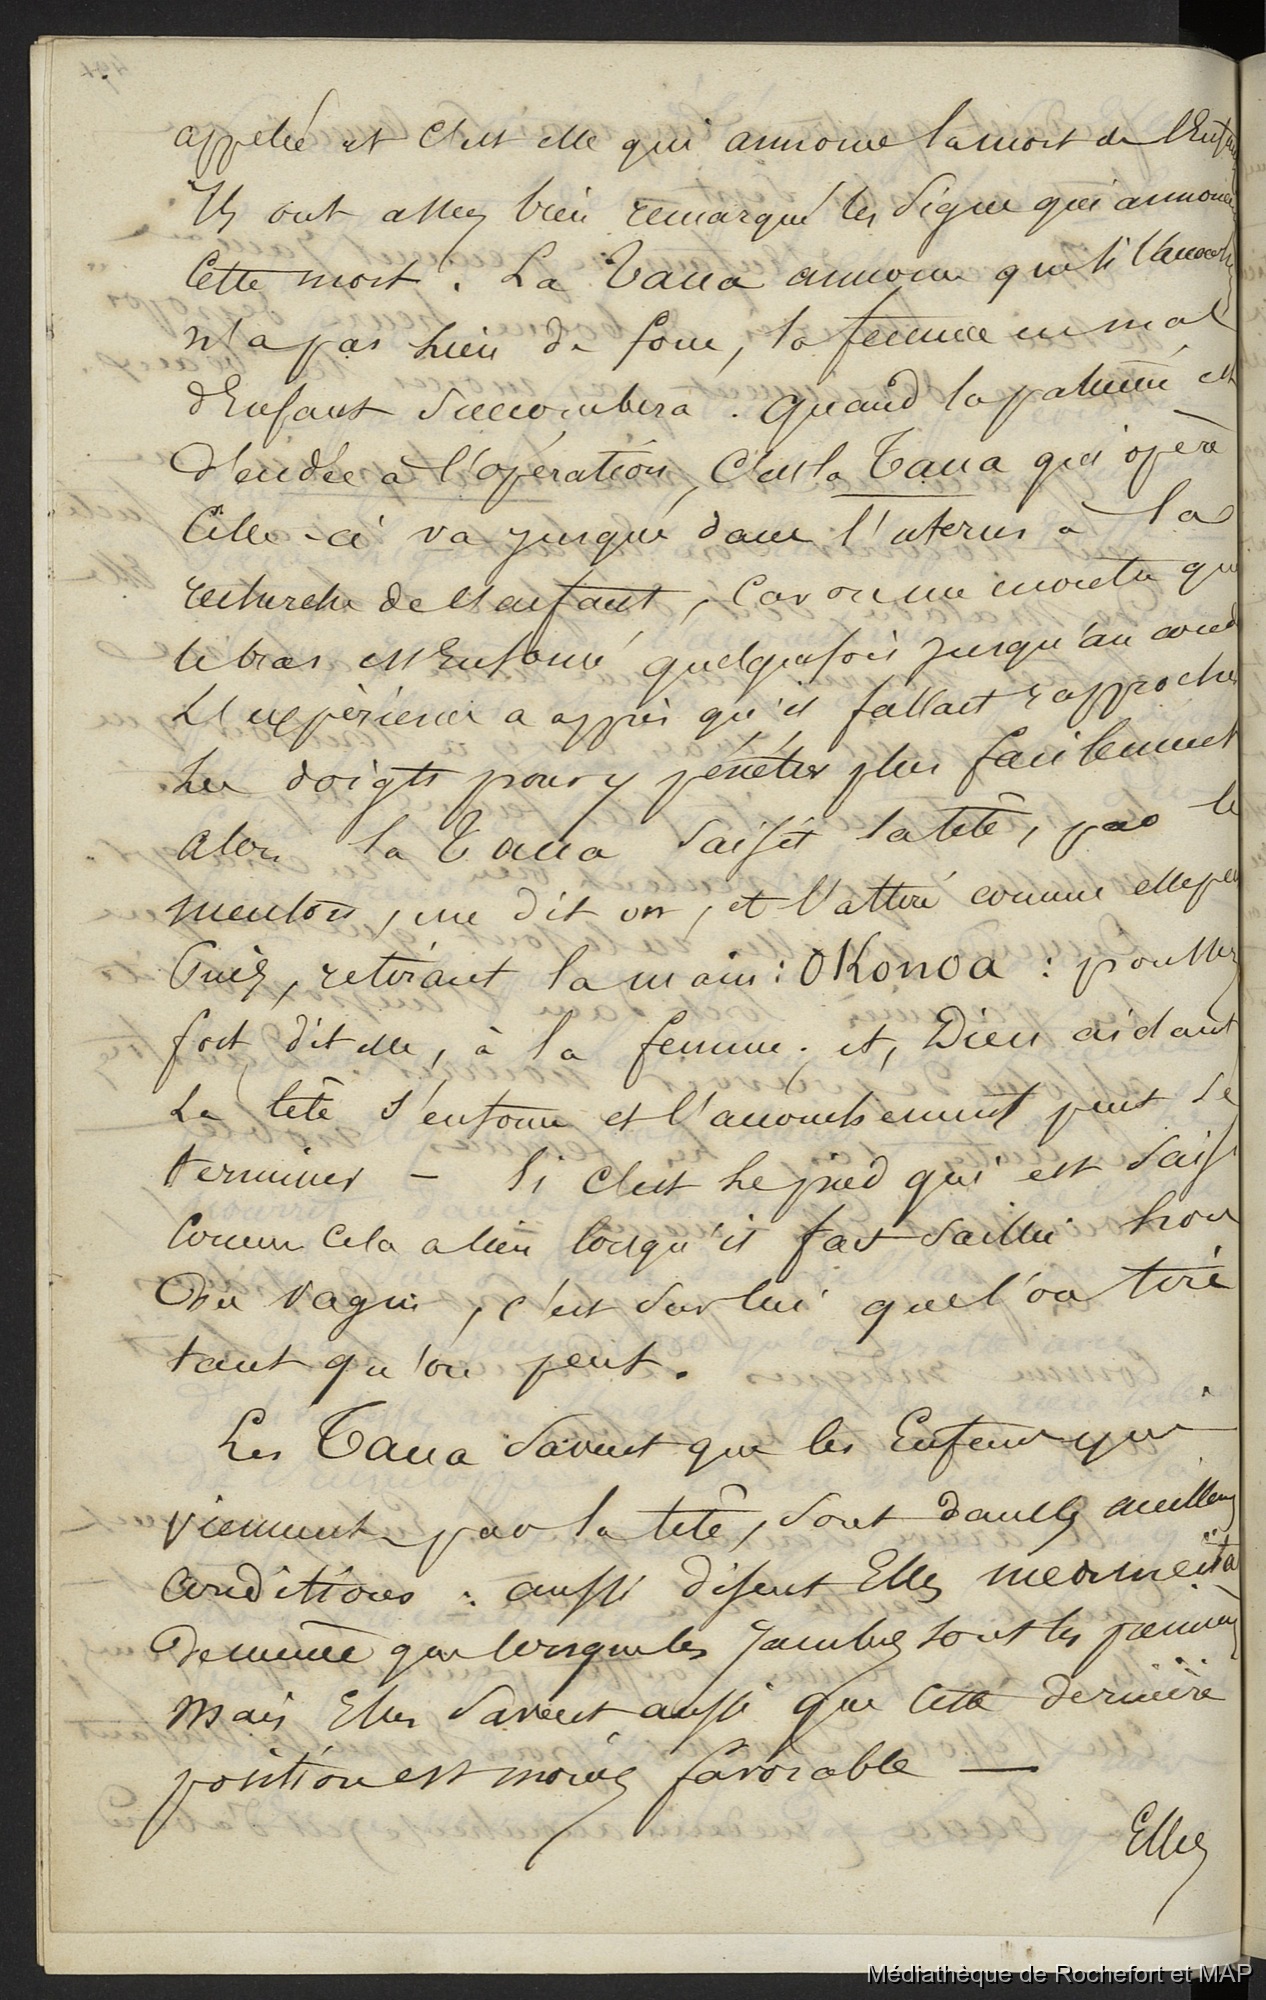 appelée et c'est elle qui annonce la mort de l'Enfant
Ils ont assez bien remarqué les signes qui annoncent
cette mort. La Taua annonce que si l'accouch
n'a pas lieu de force, la femme en mal
d'Enfant succombera. Quand la patiente est
décidée à l'opération, c'est la Taua qui opère
Celle-ci va jusque dans l'uterus à la
recherche de l'enfant, car on me montre que
le bras est Enfoncé quelquefois jusqu'au coude
L'expérience a appris qu'il fallait rapprocher
les doigts pour y pénétrer plus facilement
alors la Taua saisit la tête, par le
menton, me dit on, et l'attire comme elle peu
Puis, retirant la main : OKonoa : poussez
fort dit elle, à la femme ; et, Dieu aidant
La tête s'enfonce et l'accouchement peut se
terminer — Si c'est le pied qui est saisi
Comme cela a lieu lorsqu'il fait saillie hors
Du vagin, c'est sur lui que l'on tire
tant qu'on peut.
Les Taua savent que les Enfants qui
viennent par la tête, sont dans les meilleures
conditions : aussi disent Elles
que lorsque les jambes sont les premières
Mais Elles savent aussi que cette dernière
position est moins favorable —
Elles
Médiathèque de Rochefort et MAP